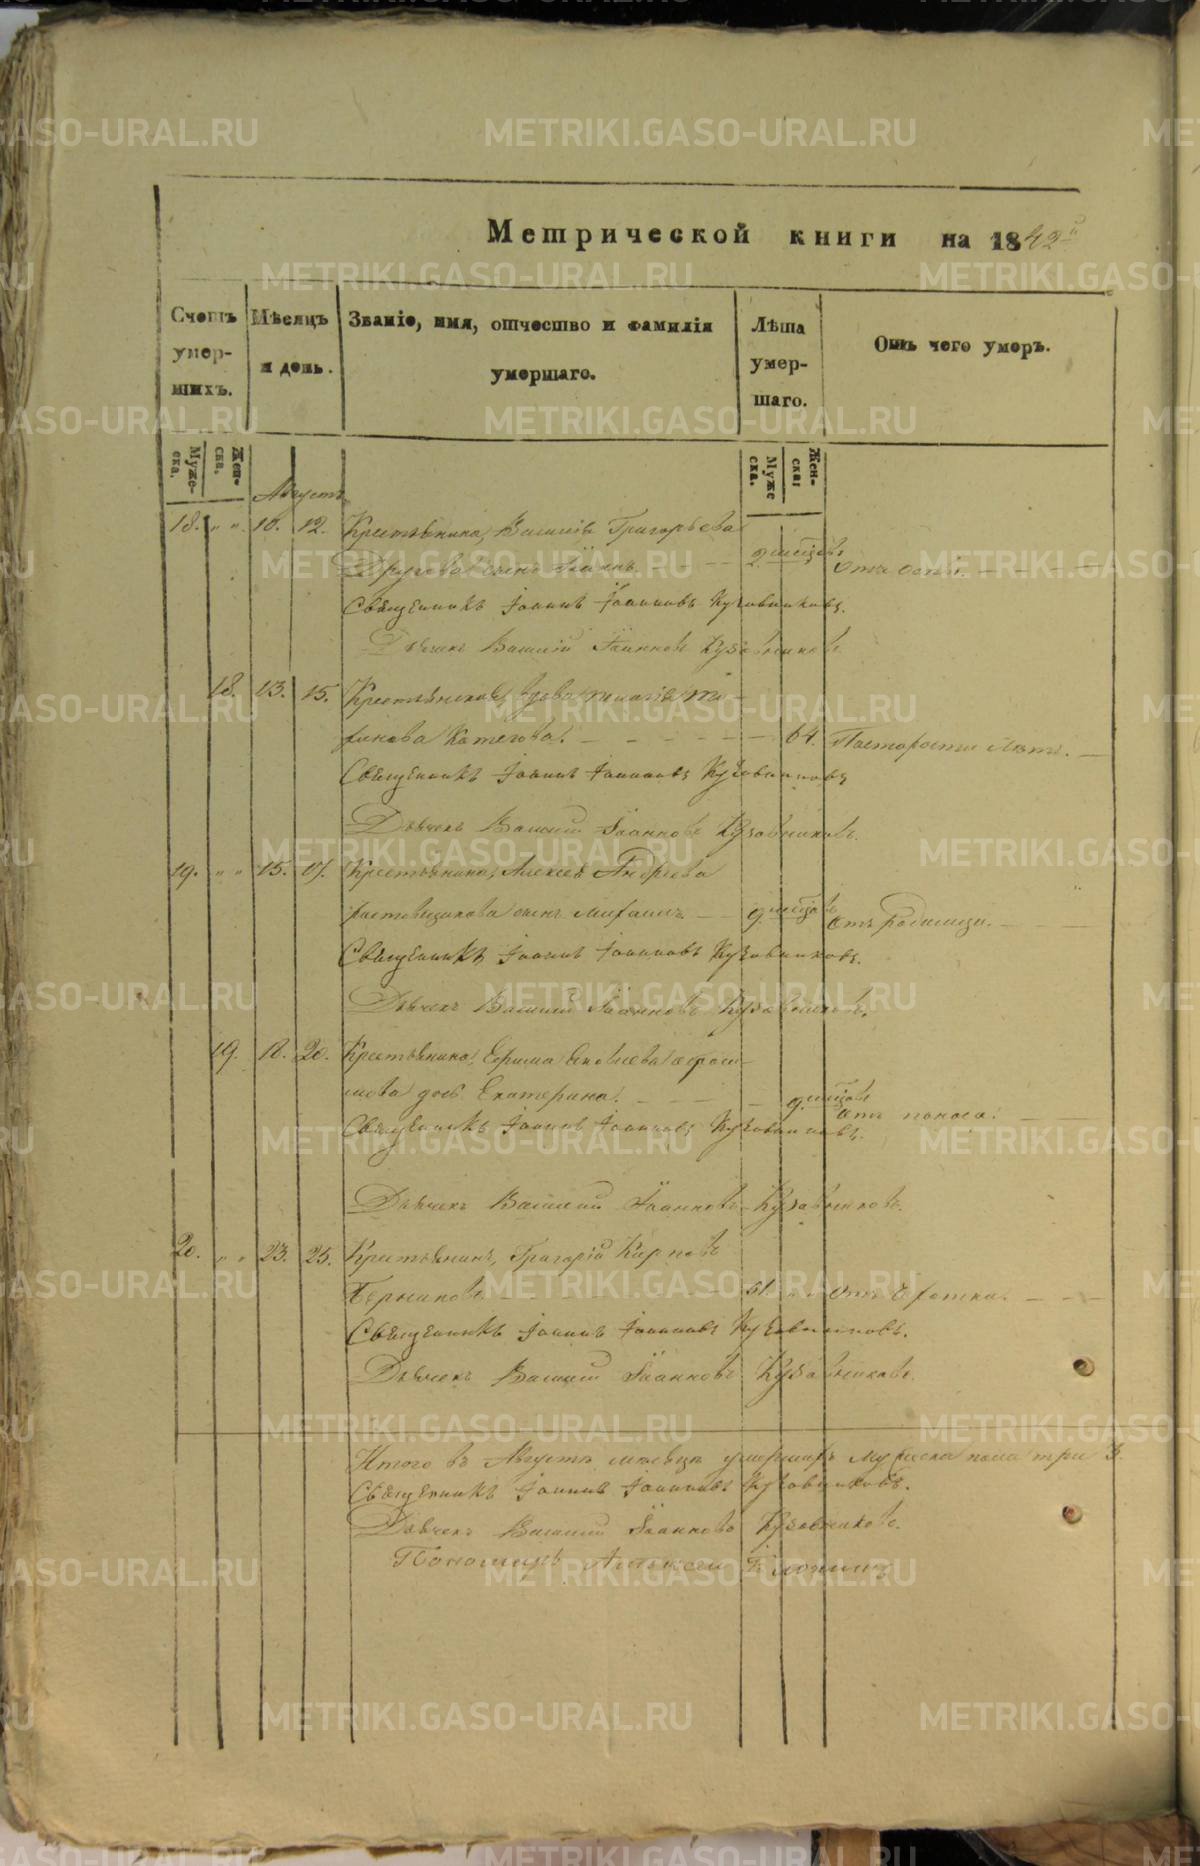 Метрической книги на 1842й
Счетъ умер-шихъ.
Мѣсяцъ и день.
Званіе, имя, отчество и фамилія умершаго.
Лѣта умер-шаго.
Отъ чего умеръ.
Муже-ска.
Жен-ска.
Муже ска.
Жен-ска:
Августъ
18. " " 10. 12. Крестьянина, Василія Григорьева
сынъ Іоаннъ. 2 мѣсяцовъ Отъ оспы.
Священникъ Іоаннъ Іоанновъ Кузовниковъ.
Дьячекъ Василій Іоанновъ Кузовниковъ
18. 13. 15. Крестьянская, вдова Пелагія
64. Отъ старости лѣтъ.
Священникъ Іоаннъ Іоанновъ Кузовниковъ
Дьячекъ Василій Іоанновъ Кузовниковъ.
19. " " 15. 17. Крестьянина, Алексея Андреева
Ростовщикова сынъ 9 мѣсяцовъ Отъ родимца.
Священникъ Іоаннъ Іоанновъ Кузовниковъ.
Дьячекъ Василій Іоанновъ Кузовниковъ.
19. 18. 20. Крестьянина, Ефима Яковлева
дочь Екатерина. 9 мѣсяцовъ Отъ поноса.
Священникъ Іоаннъ Іоанновъ Кузовниковъ.
Дьячекъ Василій Іоанновъ Кузовниковъ.
20. " " 23. 25. Крестьянинъ, Григорій Карповъ
51. " " Отъ
Священникъ Іоаннъ Іоанновъ Кузовниковъ.
Дьячекъ Василій Іоанновъ Кузовниковъ.
Итого въ Августѣ месяцѣ умершихъ мужеска пола три 3.
Священникъ Іоаннъ Іоанновъ Кузовниковъ.
Дьячекъ Василій Іоанновъ Кузовниковъ.
Пономарь Алексей
METRIKI.GASO-URAL.RU